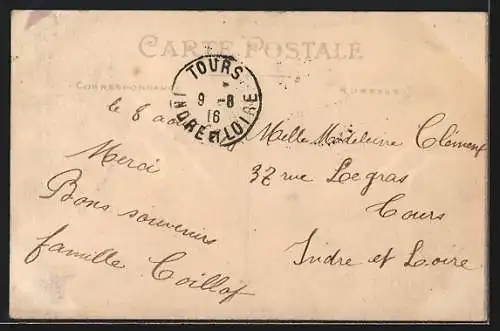 CARTE POSTALE
CORRESPONDANCE
ADRESSE
TOURS
9 - 8
16
INDRE ET LOIRE
le 8 août
Merci
Bons souvenirs
famille
Melle Madeleine Clément
37 rue Legras
Tours
Indre et Loire